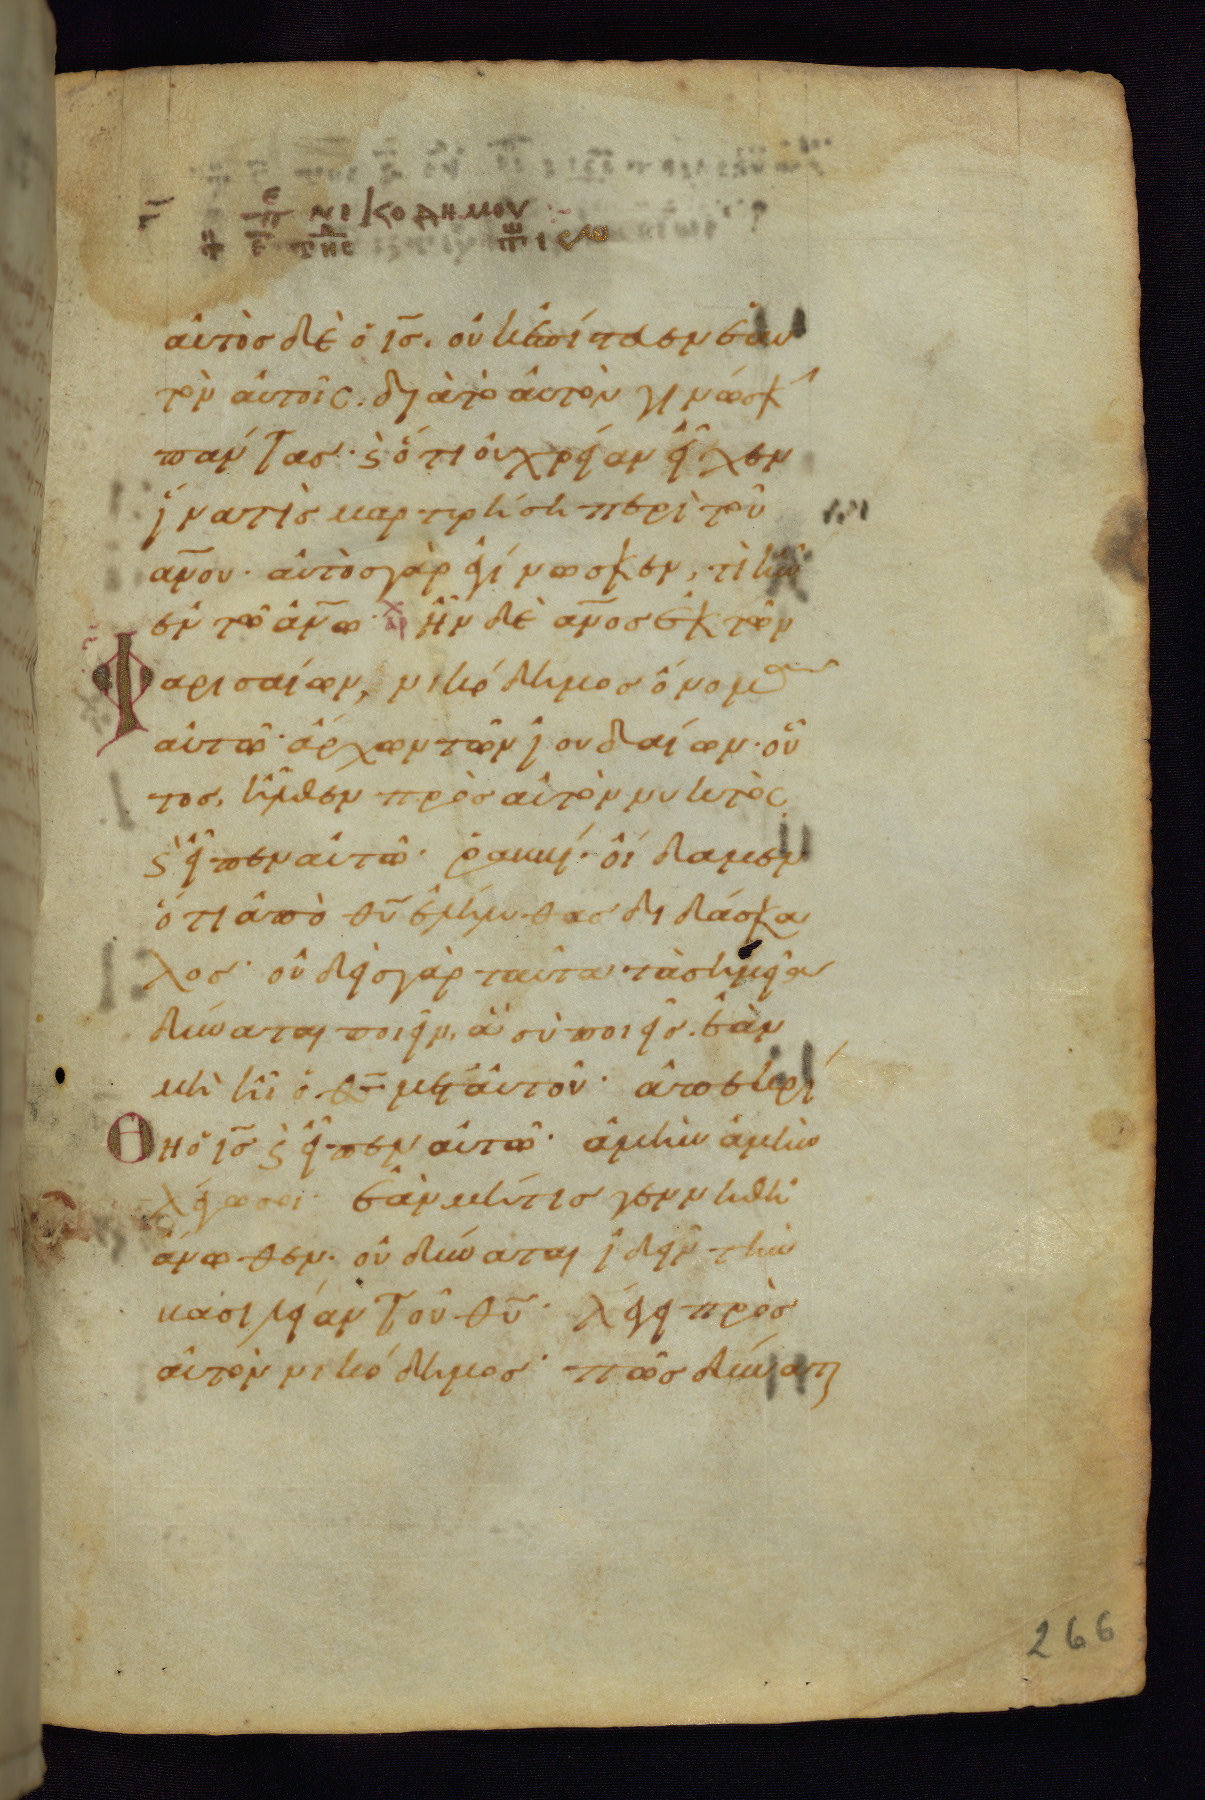 π̅ε̅ρ̅ι̅ νικοδήμου
αὐτὸς δὲ ὁ ι̅ς̅. οὐκ ἐπίστευσεν ἑαυ
τὸν αὐτοῖς. διὰ τὸ αὐτὸν γινώσκ
πάντας· ϗ ὅτι οὐ χρείαν εἶχεν
ἵνα τὶς μαρτυρήση περὶ τοῦ
α̅ν̅ου· αὐτὸς γὰρ ἐγίνωσκεν, τί ἦν
ἐν τῶ ἀ̅ν̅ω· ἦν δὲ α̅ν̅ος ἐκ τῶν
Φαρισαίων, νικόδημος ὄνομα
αὐτῶ· ἄρχων τῶν ἰουδαίων· οὗ
τος, ἦλθεν πρὸς αὐτὸν νυκτὸς
ϗ εἶπεν αὐτῶ· ῥαββί· οἴδαμεν
ὅτι ἀπὸ θ̅υ̅ ἐλήλυθας διδάσκα
λος· οὐδεὶς γὰρ ταῦτα τὰ σημεῖα
δύναται ποιεῖν, ἃ σὺ ποιεῖς. ἐὰν
μὴ ἦ ὁ θ̅ς̅ μετ' αὐτοῦ· ἀπεκρί
Θη ὁ ι̅ς̅ ϗ εἶπεν αὐτῶ· ἀμὴν ἀμὴν
λέγω σοι· ἐὰν μή τις γεννηθῆ
ἄνωθεν· οὐ δύναται ἰδεῖν τὴν
βασιλείαν τοῦ θ̅υ̅· λέγει πρὸς
αὐτὸν νικόδημος· πῶς δύναται
266